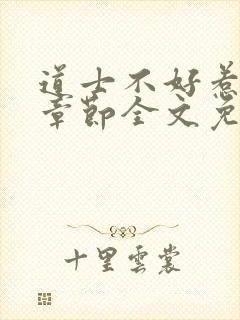 道士不好惹
章節全文免
十里雲裳